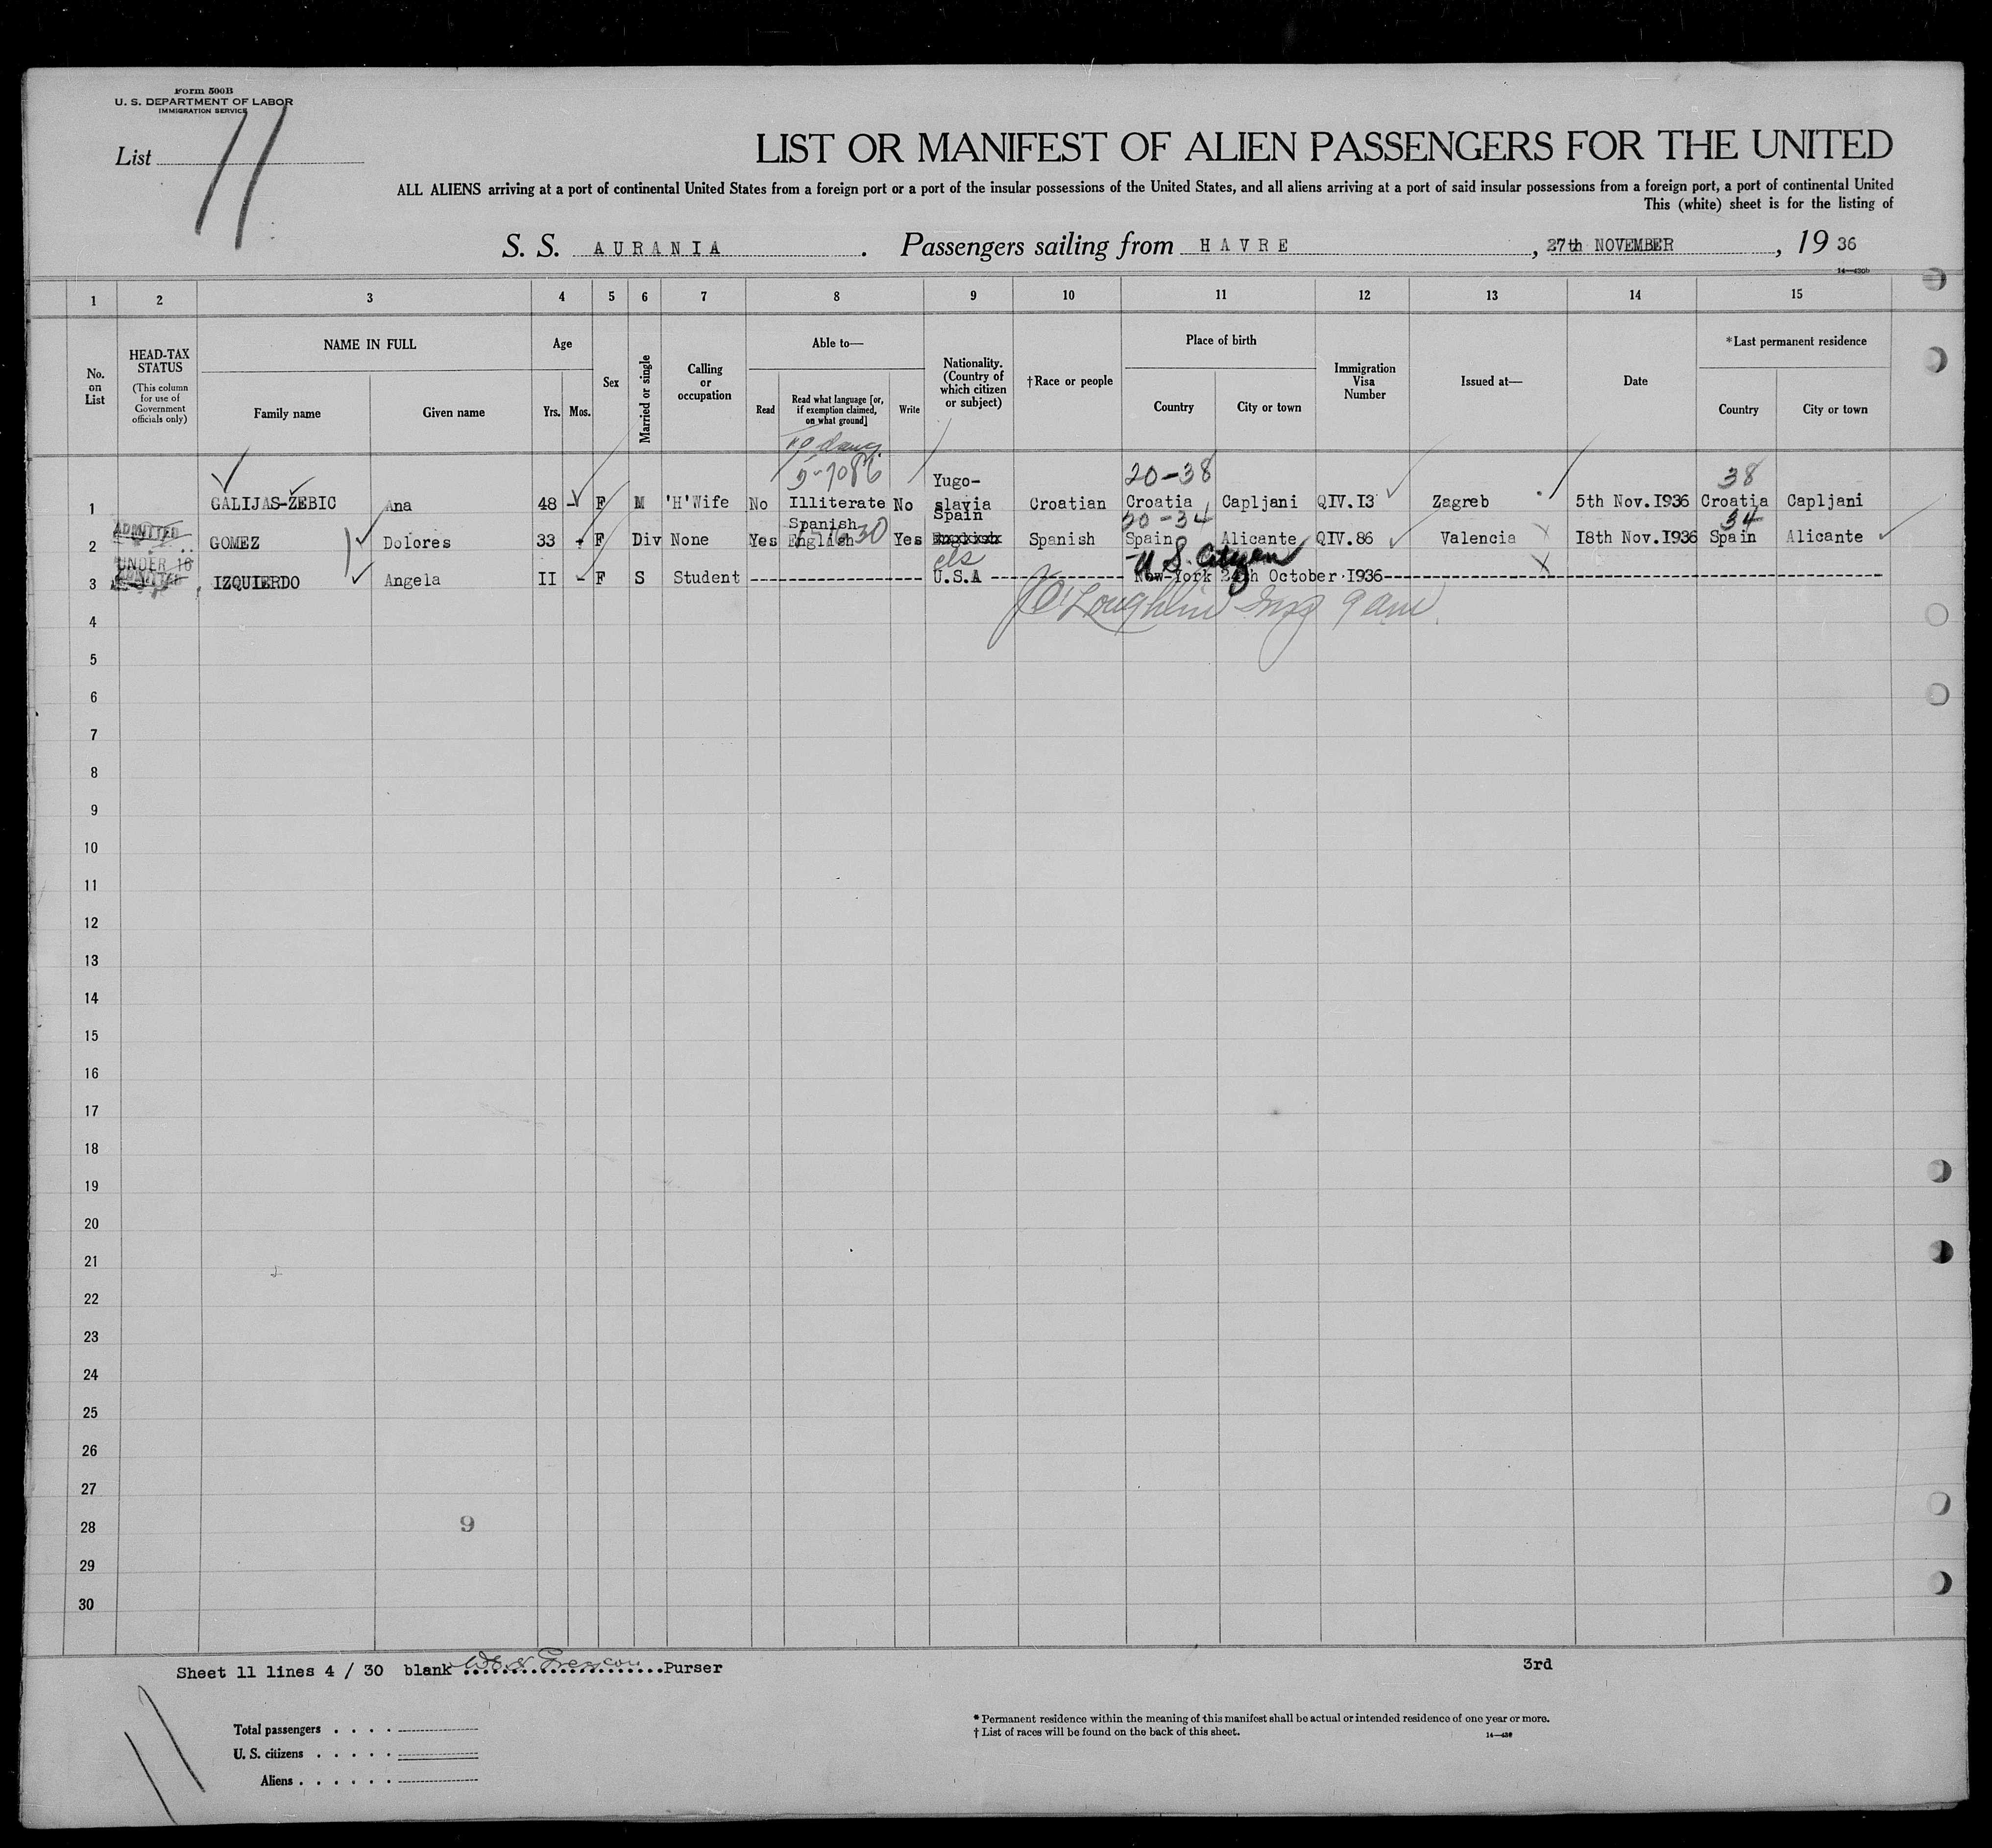 Form 500B
U. S. DEPARTMENT OF LABOR
IMMIGRATION SERVICE
List 11
LIST OR MANIFEST OF ALIEN PASSENGERS FOR THE UNITED
ALL ALIENS arriving at a port of continental United States from a foreign port or a port of the insular possessions of the United States, and all aliens arriving at a port of said insular possessions from a foreign port, a port of continental United
This (white) sheet is for the listing of
S. S. AURANIA. Passengers sailing from HAVRE, 27th NOVEMBER, 19 36
14—430b
1 2 3 4 5 6 7 8 9 10 11 12 13 14 15
No. on List
HEAD-TAX STATUS (This column for use of Government officials only)
NAME IN FULL
Family name Given name
Age
Yrs. Mos.
Sex
Married or single
Calling or occupation
Able to—
Read Read what language [or, if exemption claimed, on what ground] Write
Nationality. (Country of which citizen or subject)
†Race or people
Place of birth
Country City or town
Immigration Visa Number
Issued at—
Date
*Last permanent residence
Country City or town
20-38 38
1 GALIJAS-ZEBIC Ana 48 F M 'H'Wife No Illiterate No Yugo-slavia Croatian Croatia Capljani QIV.I3 Zagreb 5th Nov.I936 Croatia Capljani
20-34 34
ADMITTED
2 GOMEZ Dolores 33 F Div None Yes Spanish English Yes Spain Spanish Spain Alicante QIV.86 Valencia I8th Nov.I936 Spain Alicante
UNDER 16
U.S. Citizen
3 IZQUIERDO Angela II F S Student U.S.A New-York October I936
4
5
6
7
8
9
10
11
12
13
14
15
16
17
18
19
20
21
22
23
24
25
26
27
28
29
30
9
Sheet 11 lines 4 / 30 blank Purser
3rd
11
Total passengers
U. S. citizens
Aliens
* Permanent residence within the meaning of this manifest shall be actual or intended residence of one year or more.
† List of races will be found on the back of this sheet.